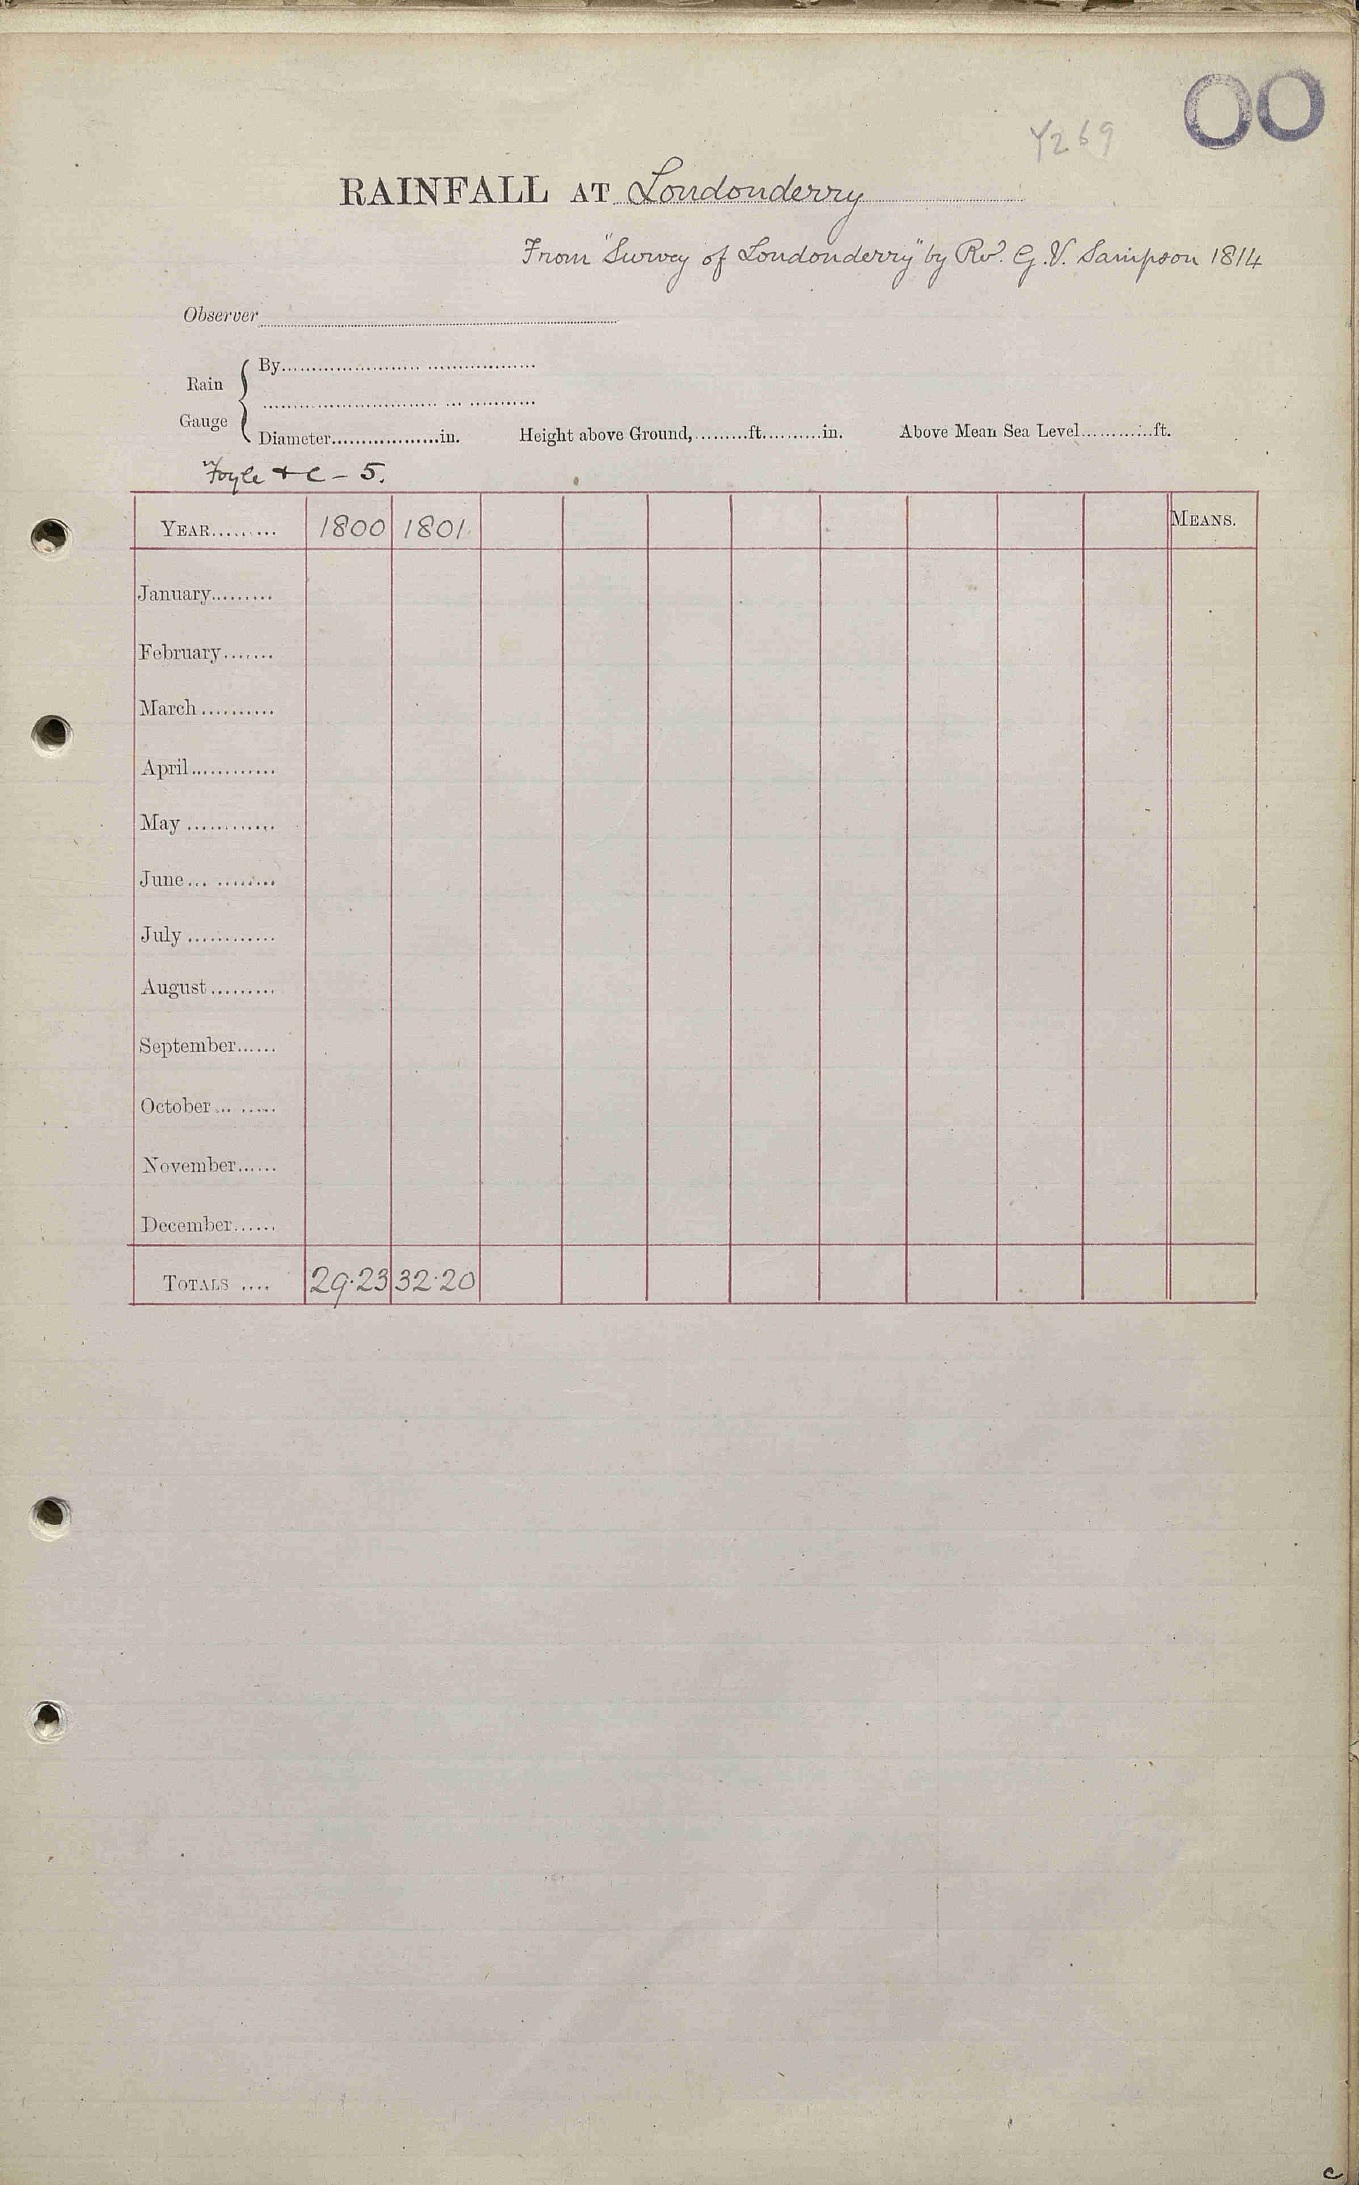 OO
Y269
RAINFALL AT Londonderry
From "Survey of Londonderry" by Rvd. G. V. Sampson 1814
Observer
Rain Gauge { By
Diameter..................in. Height above Ground,.........ft..........in. Above Mean Sea Level............ft.
Foyle & C - 5.
YEAR......... 1800 1801 MEANS.
January.........
February.......
March..........
April............
May ............
June... .........
July ............
August.........
September......
October... ......
November......
December......
TOTALS .... 29·23 32·20
c